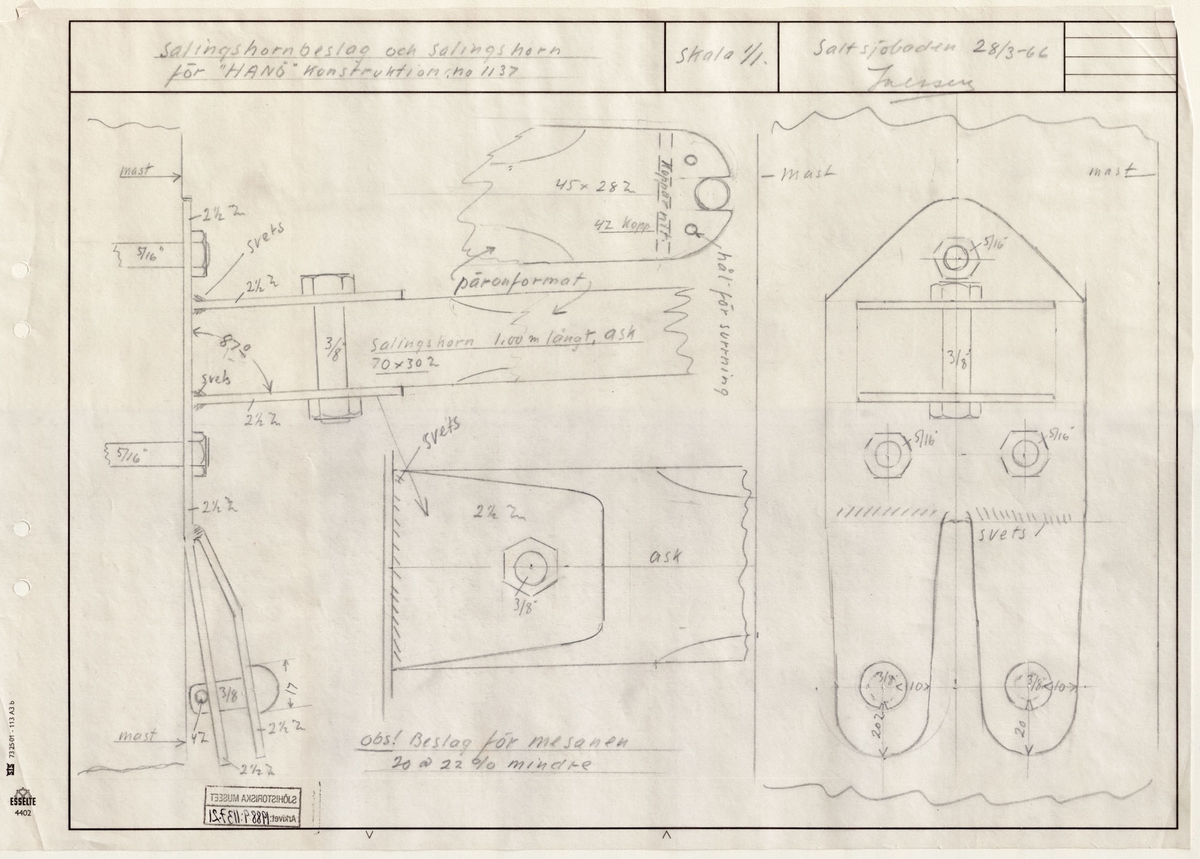 Salingshornbeslag och Salingshorn
för "HANÖ" Konstruktion.no 1137
Skala 1/1.
Saltsjöbaden 28/3-66
mast
2½ Z
5/16"
svets
2½ Z
87°
svets
2½ Z
3/8"
5/16"
2½ Z
45x28 Z
Koppar nit.
42 Kopp.
hål för surrning
päronformat
Salingshorn 1.00 m långt, ask
70x30 Z
svets
2½ Z
3/8"
ask
mast
mast
5/16"
3/8"
5/16"
5/16"
svets
3/8"
10
3/8"
10
20 Z
20
3/8
17
4Z
2½ Z
2½ Z
mast
obs! Beslag för mesanen
20 à 22 % mindre
SJÖHISTORISKA MUSEET
Arkivet:
SIS 732501 - 113 A3 b
ESSELTE
4402